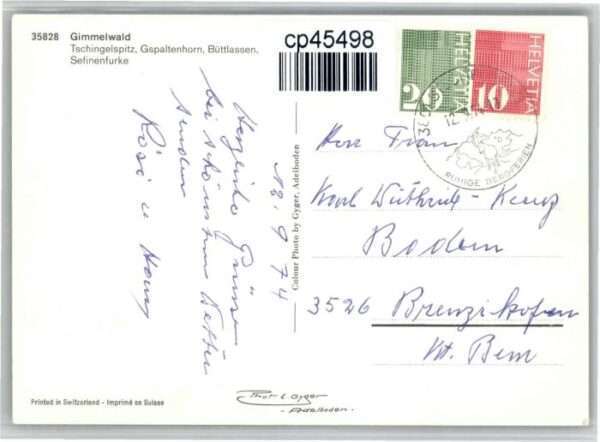 35828 Gimmelwald
Tschingelspitz, Gspaltenhorn, Büttlassen,
Sefinenfurke
cp45498
20 HELVETIA
10 HELVETIA
RUHIGE BERGFERIEN
12.9.74
Herzliche Grüsse
bei schönstem Wetter
senden
Rösi u
Colour Photo by Gyger, Adelboden
Herr Frau
Karl Wüthrich-Kenz
Boden
3526 Brenzikofen
Kt. Bern
Printed in Switzerland - Imprimé en Suisse
Phot. E. Gyger
Adelboden